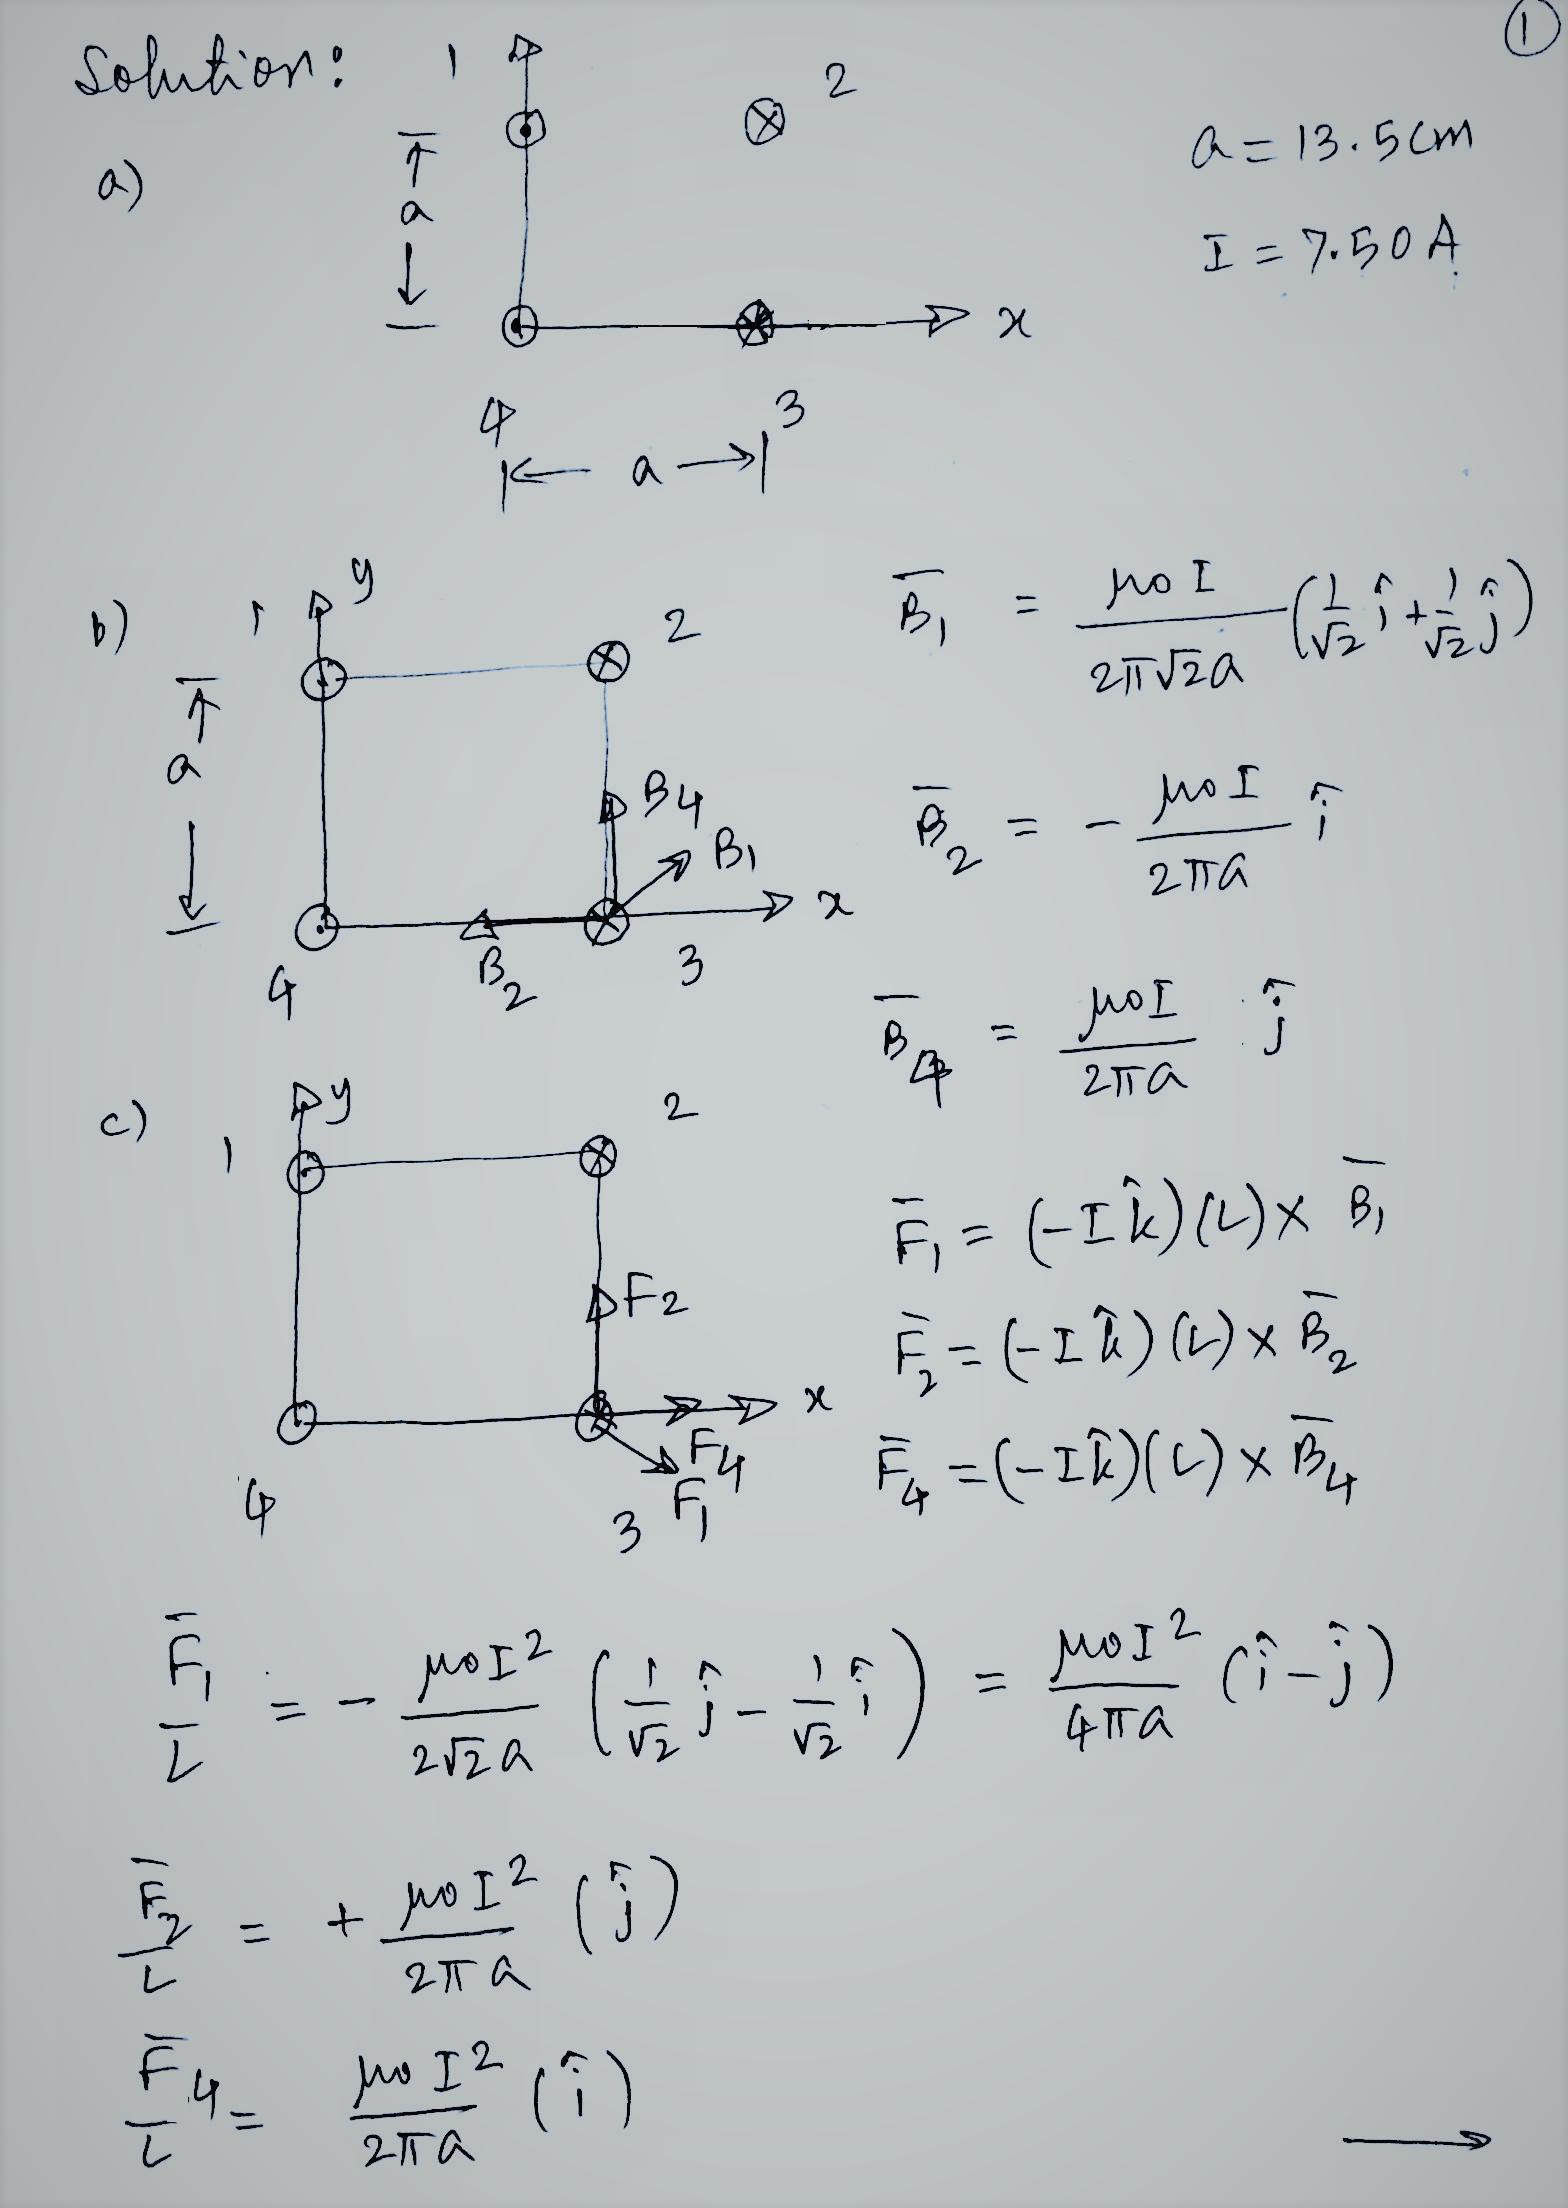 ①
Solution:
a)
1
2
a
x
4
3
a
a = 13.5 cm
I = 7.50 A
b)
y
1
2
a
B4
B1
x
B2
4
3
B̅₁ = μ₀I / 2π√2a (1/√2 î + 1/√2 ĵ)
B̅₂ = - μ₀I / 2πa î
B̅₄ = μ₀I / 2πa ĵ
c)
y
1
2
F2
x
F4
F1
4
3
F̅₁ = (-I k̂)(L) × B̅₁
F̅₂ = (-I k̂)(L) × B̅₂
F̅₄ = (-I k̂)(L) × B̅₄
F̅₁/L = - μ₀I² / 2√2a (1/√2 ĵ - 1/√2 î) = μ₀I² / 4πa (î - ĵ)
F̅₂/L = + μ₀I² / 2πa (ĵ)
F̅₄/L = μ₀I² / 2πa (î)